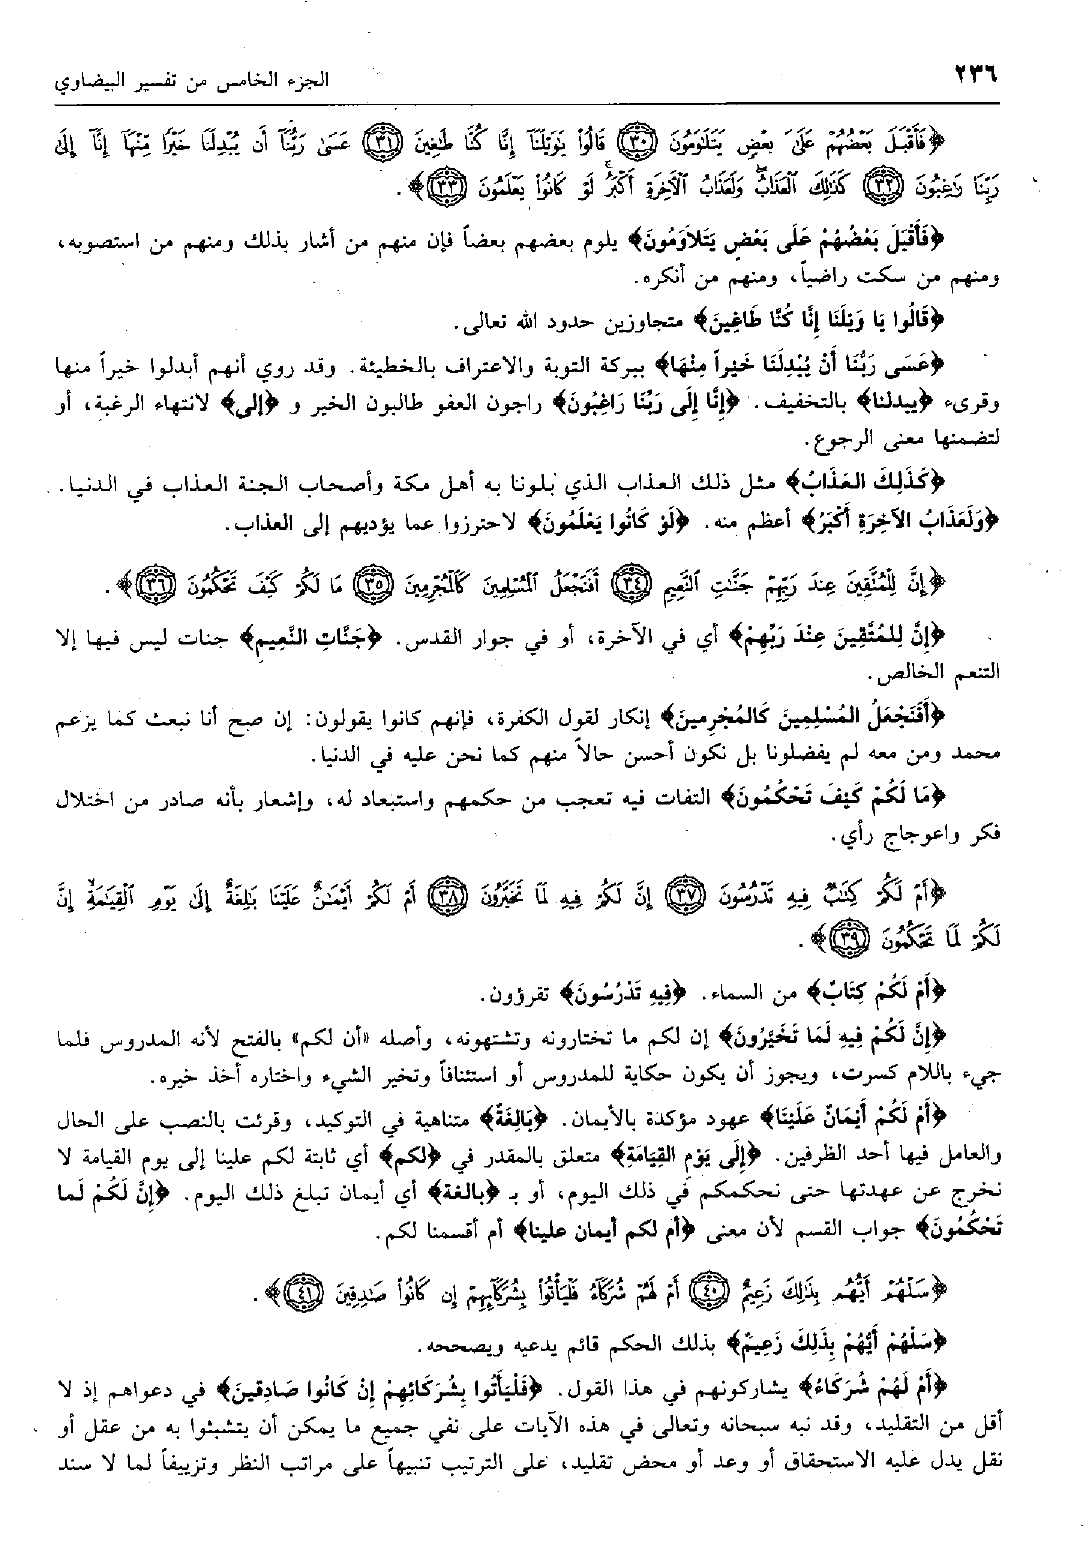 ٢٣٦ الجزء الخامس من تفسير البيضاوي
﴿فَأَقْبَلَ بَعْضُهُمْ عَلَىٰ بَعْضٍ يَتَلَاوَمُونَ ﴿٣٠﴾ قَالُوا۟ يَٰوَيْلَنَآ إِنَّا كُنَّا طَٰغِينَ ﴿٣١﴾ عَسَىٰ رَبُّنَآ أَن يُبْدِلَنَا خَيْرًا مِّنْهَآ إِنَّآ إِلَىٰ
رَبِّنَا رَٰغِبُونَ ﴿٣٢﴾ كَذَٰلِكَ ٱلْعَذَابُ ۖ وَلَعَذَابُ ٱلْءَاخِرَةِ أَكْبَرُ ۚ لَوْ كَانُوا۟ يَعْلَمُونَ ﴿٣٣﴾﴾.
﴿فَأَقْبَلَ بَعْضُهُمْ عَلَى بَعْضٍ يَتَلاوَمُونَ﴾ يلوم بعضهم بعضاً فإن منهم من أشار بذلك ومنهم من استصوبه،
ومنهم من سكت راضياً، ومنهم من أنكره.
﴿قَالُوا يَا وَيْلَنَا إِنَّا كُنَّا طَاغِينَ﴾ متجاوزين حدود الله تعالى.
﴿عَسَى رَبُّنَا أَنْ يُبْدِلَنَا خَيْراً مِنْهَا﴾ ببركة التوبة والاعتراف بالخطيئة. وقد روي أنهم أبدلوا خيراً منها
وقرىء ﴿يبدلنا﴾ بالتخفيف. ﴿إِنَّا إِلَى رَبِّنَا رَاغِبُونَ﴾ راجون العفو طالبون الخير و ﴿إلى﴾ لانتهاء الرغبة، أو
لتضمنها معنى الرجوع.
﴿كَذَلِكَ العَذَابُ﴾ مثل ذلك العذاب الذي بلونا به أهل مكة وأصحاب الجنة العذاب في الدنيا.
﴿وَلَعَذَابُ الآخِرَةِ أَكْبَرُ﴾ أعظم منه. ﴿لَوْ كَانُوا يَعْلَمُونَ﴾ لاحترزوا عما يؤديهم إلى العذاب.
﴿إِنَّ لِلْمُتَّقِينَ عِندَ رَبِّهِمْ جَنَّٰتِ ٱلنَّعِيمِ ﴿٣٤﴾ أَفَنَجْعَلُ ٱلْمُسْلِمِينَ كَٱلْمُجْرِمِينَ ﴿٣٥﴾ مَا لَكُمْ كَيْفَ تَحْكُمُونَ ﴿٣٦﴾﴾.
﴿إِنَّ لِلمُتَّقِينَ عِنْدَ رَبِّهِمْ﴾ أي في الآخرة، أو في جوار القدس. ﴿جَنَّاتِ النَّعِيمِ﴾ جنات ليس فيها إلا
التنعم الخالص.
﴿أَفَنَجْعَلُ المُسْلِمِينَ كَالمُجْرِمِينَ﴾ إنكار لقول الكفرة، فإنهم كانوا يقولون: إن صح أنا نبعث كما يزعم
محمد ومن معه لم يفضلونا بل نكون أحسن حالاً منهم كما نحن عليه في الدنيا.
﴿مَا لَكُمْ كَيْفَ تَحْكُمُونَ﴾ التفات فيه تعجب من حكمهم واستبعاد له، وإشعار بأنه صادر من اختلال
فكر واعوجاج رأي.
﴿أَمْ لَكُمْ كِتَٰبٌ فِيهِ تَدْرُسُونَ ﴿٣٧﴾ إِنَّ لَكُمْ فِيهِ لَمَا تَخَيَّرُونَ ﴿٣٨﴾ أَمْ لَكُمْ أَيْمَٰنٌ عَلَيْنَا بَٰلِغَةٌ إِلَىٰ يَوْمِ ٱلْقِيَٰمَةِ ۙ إِنَّ
لَكُمْ لَمَا تَحْكُمُونَ ﴿٣٩﴾﴾.
﴿أَمْ لَكُمْ كِتَابٌ﴾ من السماء. ﴿فِيهِ تَدْرُسُونَ﴾ تقرؤون.
﴿إِنَّ لَكُمْ فِيهِ لَمَا تَخَيَّرُونَ﴾ إن لكم ما تختارونه وتشتهونه، وأصله «أن لكم» بالفتح لأنه المدروس فلما
جيء باللام كسرت، ويجوز أن يكون حكاية للمدروس أو استئنافاً وتخير الشيء واختاره أخذ خيره.
﴿أَمْ لَكُمْ أَيْمَانٌ عَلَيْنَا﴾ عهود مؤكدة بالأيمان. ﴿بَالِغَةٌ﴾ متناهية في التوكيد، وقرئت بالنصب على الحال
والعامل فيها أحد الظرفين. ﴿إِلَى يَوْمِ القِيَامَةِ﴾ متعلق بالمقدر في ﴿لكم﴾ أي ثابتة لكم علينا إلى يوم القيامة لا
نخرج عن عهدتها حتى نحكمكم في ذلك اليوم، أو بـ ﴿بالغة﴾ أي أيمان تبلغ ذلك اليوم. ﴿إِنَّ لَكُمْ لَما
تَحْكُمُونَ﴾ جواب القسم لأن معنى ﴿أم لكم أيمان علينا﴾ أم أقسمنا لكم.
﴿سَلْهُمْ أَيُّهُم بِذَٰلِكَ زَعِيمٌ ﴿٤٠﴾ أَمْ لَهُمْ شُرَكَآءُ فَلْيَأْتُوا۟ بِشُرَكَآئِهِمْ إِن كَانُوا۟ صَٰدِقِينَ ﴿٤١﴾﴾.
﴿سَلْهُمْ أَيُّهُمْ بِذَلِكَ زَعِيمٌ﴾ بذلك الحكم قائم يدعيه ويصححه.
﴿أَمْ لَهُمْ شُرَكَاءُ﴾ يشاركونهم في هذا القول. ﴿فَلْيَأْتُوا بِشُرَكَائِهِمْ إِنْ كَانُوا صَادِقِينَ﴾ في دعواهم إذ لا
أقل من التقليد، وقد نبه سبحانه وتعالى في هذه الآيات على نفي جميع ما يمكن أن يتشبثوا به من عقل أو
نقل يدل عليه الاستحقاق أو وعد أو محض تقليد، على الترتيب تنبيهاً على مراتب النظر وتزييفاً لما لا سند